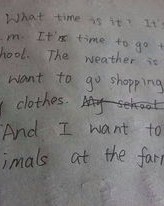 What time is it? It'
.m. It's time to go t
hool. The weather is
want to go shopping
y clothes. My school
And I want to
imals at the farm